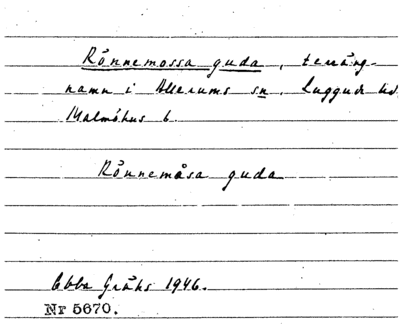 Rönnemossa guda, terräng-
namn i Allerums sn, Luggude hd.
Malmöhus l.
Rönnemåsa guda
Ebba Gråhs 1946.
Nr 5670.